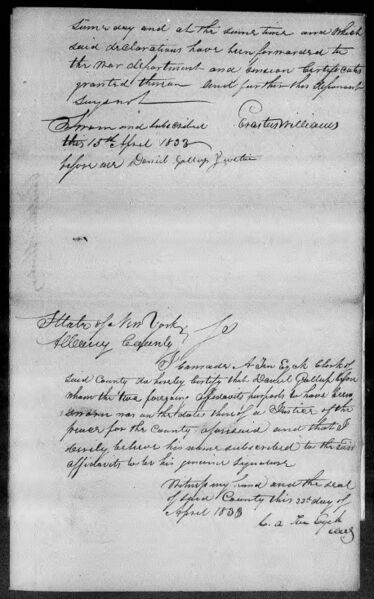 same day and at the same time and which
said declarations have been forwarded to
the War department and Pension Certificates
granted thereon And further this deponant
Says not
Sworn and subscribed
this 15th April 1833
Erastus Williams
before me Daniel Gallup Justice
State of New York
Albany County
I Conrade A Ten Eyck Clerk of
said County do hereby Certify that Daniel Gallup before
whom the two foregoing Affidavits purports to have been
sworn was on the dates thereof a Justice of the
peace for the County aforesaid and that I
verily believe his name subscribed to the said
affidavits to be his genuine signature
Witness my hand and the seal
of said County this 23d day of
April 1833
C. A Ten Eyck
Clerk